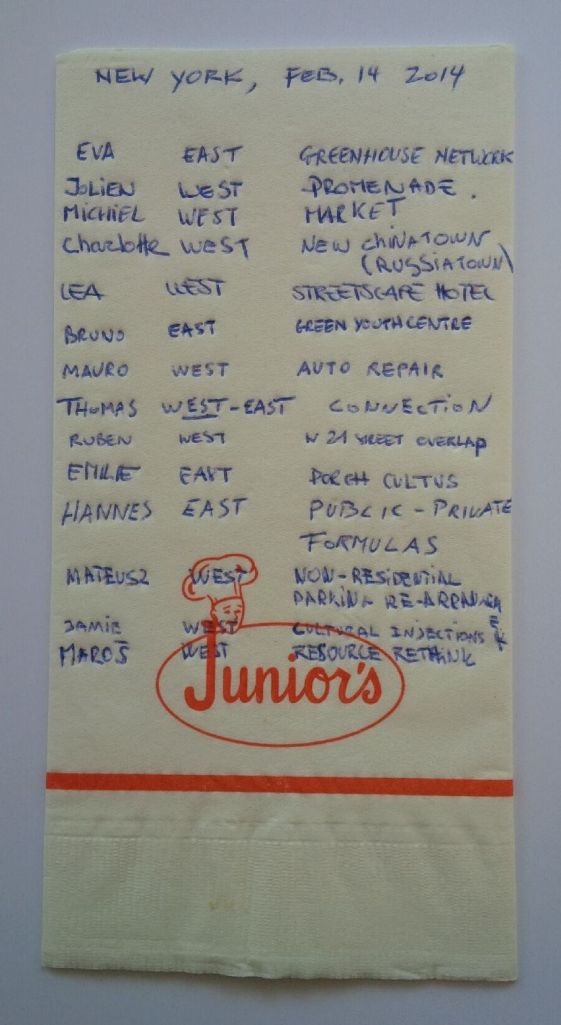 NEW YORK, FEB. 14 2014
EVA EAST GREENHOUSE NETWORK
JOLIEN WEST PROMENADE.
MICHIEL WEST MARKET
Charlotte WEST NEW CHINATOWN
(RUSSIATOWN)
LEA WEST STREETSCAPE HOTEL
BRUNO EAST GREEN YOUTHCENTRE
MAURO WEST AUTO REPAIR
THOMAS WEST-EAST CONNECTION
RUBEN WEST W 21 STREET OVERLAP
EMILIE EAST PORCH CULTUS
HANNES EAST PUBLIC - PRIVATE
FORMULAS
MATEUSZ WEST NON-RESIDENTIAL
PARKING
JAMIE WEST CULTURAL INJECTIONS
MAROŠ WEST RESOURCE RETHINK
Junior's